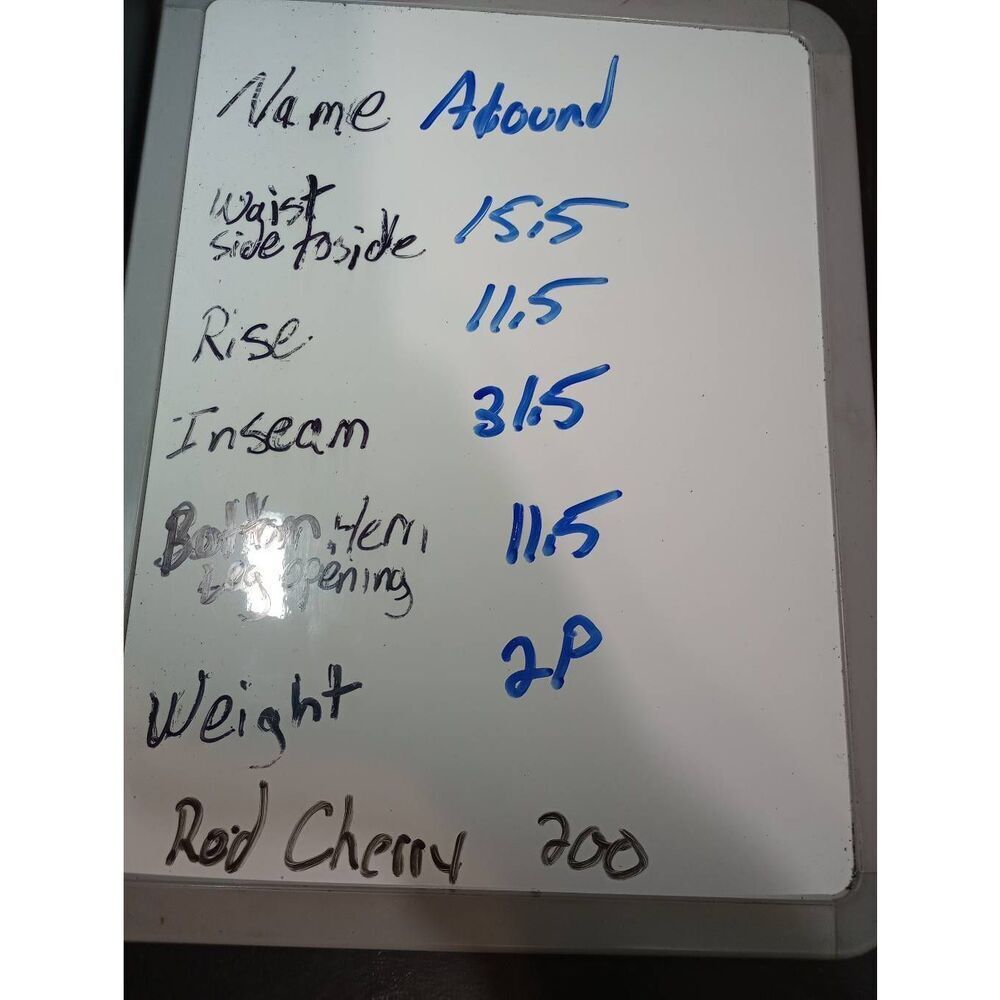 Name Abound
Waist side to side 15.5
Rise 11.5
Inseam 31.5
Bottom Hem Leg opening 11.5
Weight 2P
Red Cherry 200